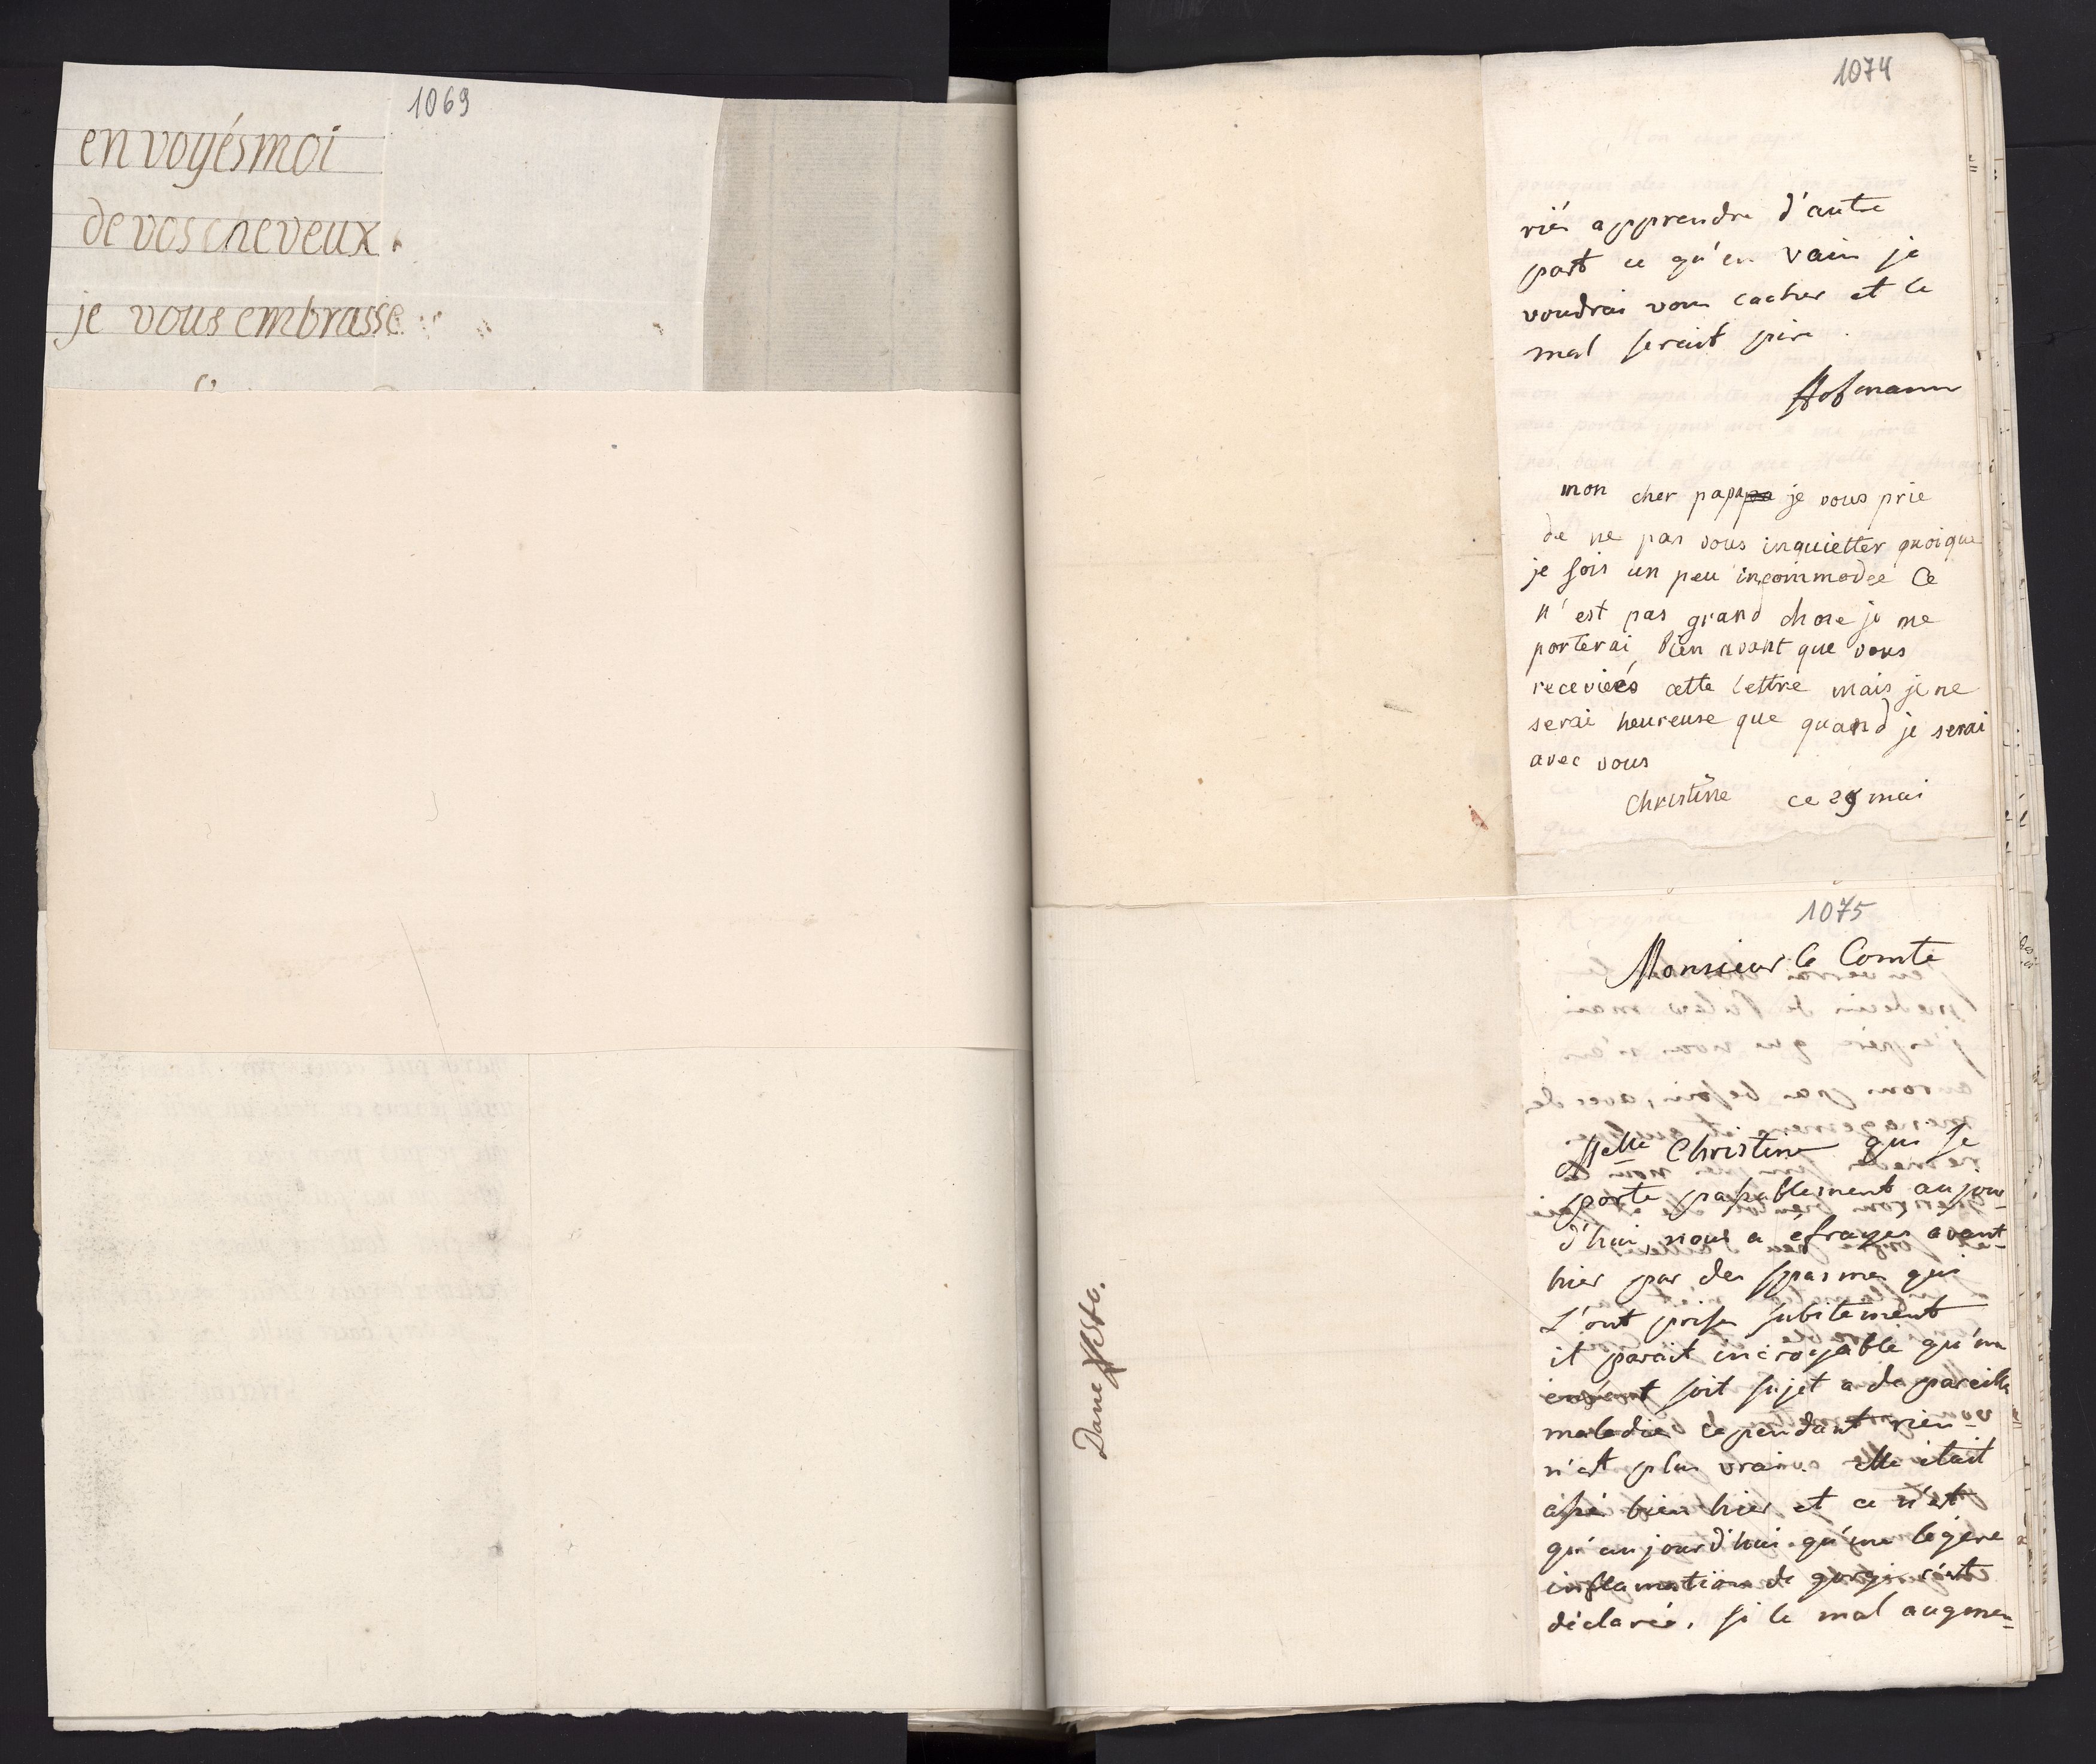 1069
envoyés moi
de vos cheveux.
je vous embrasse
1074
riés apprendre d'autre
part ce qu'en vain je
voudrai vous cacher et le
mal serait pire.
Hofmann
mon cher papa je vous prie
de ne pas vous inquietter quoique
je sois un peu incommodée Ce
n'est pas grand chose je me
porterai bien avant que vous
receviés cette lettre mais je ne
serai heureuse que quand je serai
avec vous
Christine ce 29 mai
1075
Monsieur le Comte
Melle Christine qui se
porte passablement aujour-
d'hui nous a éfrayés avant-
hier par des spasmes qui
L'ont prise subitement
il parait incroyable qu'un
enfant soit sujet a de pareille
maladie cependant rien
n'est plus vrai. elle était
assés bien hier et ce n'est
qu'aujourd'hui qu'une légère
inflamation de gorge s'est
déclarée. si le mal augmen-
Dane